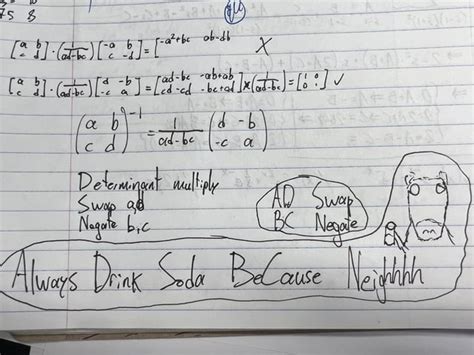 75 8
[a b c d] · (1/ad-bc) [-a b c -d] = [-a²+bc ab-db X
[a b c d] · (1/ad-bc) [d -b -c a] = [ad-bc -ab+ab cd-cd -bc+ad] × (1/ad-bc) = [1 0 0 1] ✓
(a b c d)⁻¹ = 1/ad-bc (d -b -c a)
Determinant multiply
Swap ad
Negate b,c
AD Swap
BC Negate
Always Drink Soda BeCause Neighhhh